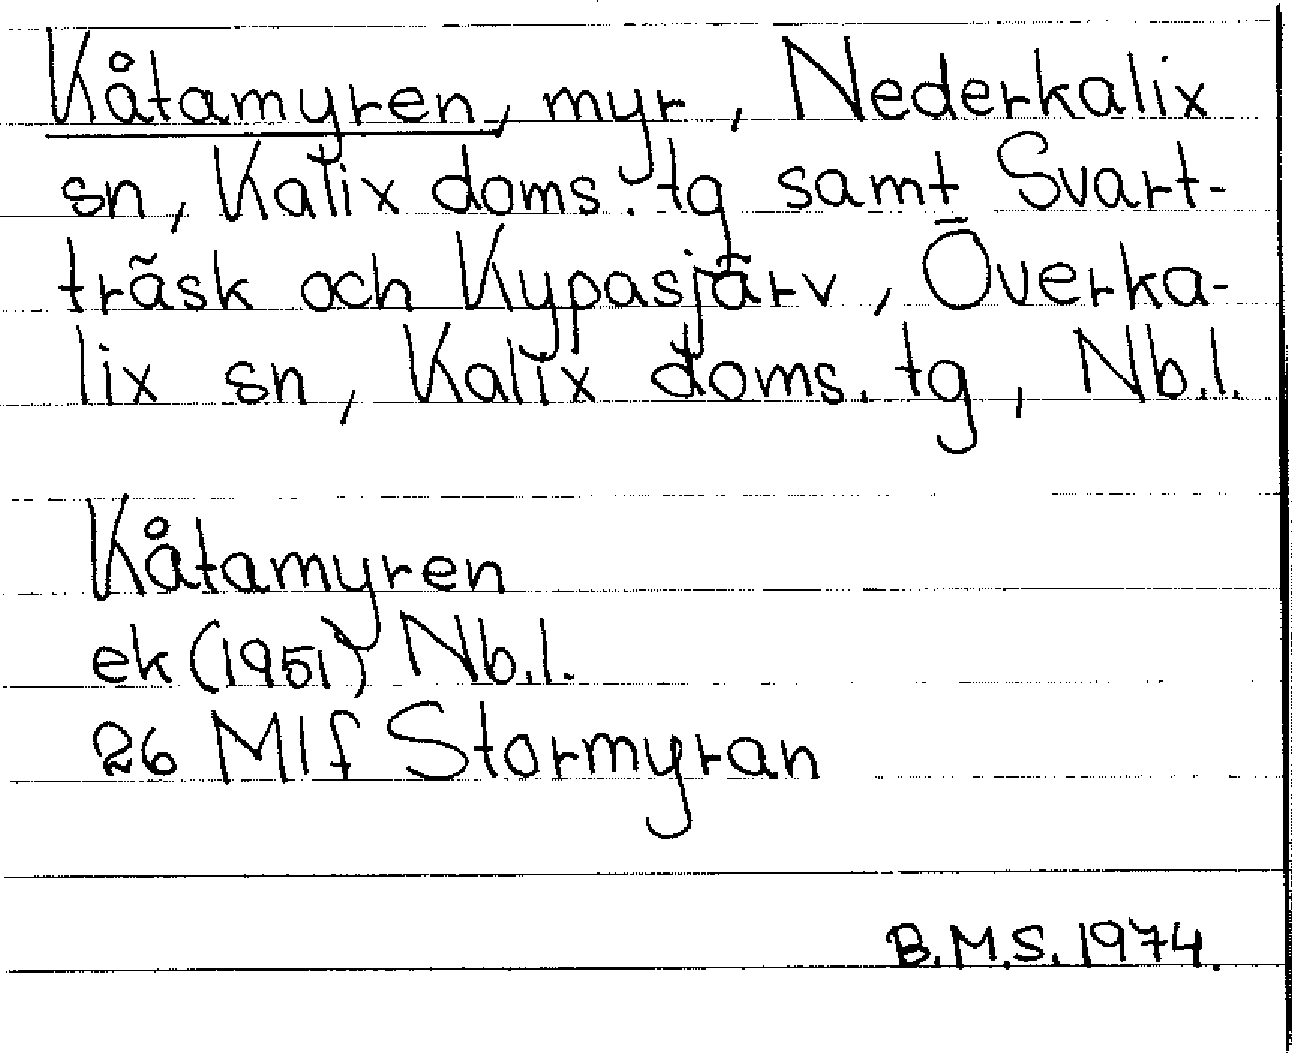 Kåtamyren, myr, Nederkalix
sn, Kalix doms. tg samt Svart-
träsk och Kypasjärv, Överka-
lix sn, Kalix doms. tg, Nb.l.
Kåtamyren
ek (1951) Nb.l.
26 Mlf Stormyran
B.M.S. 1974.